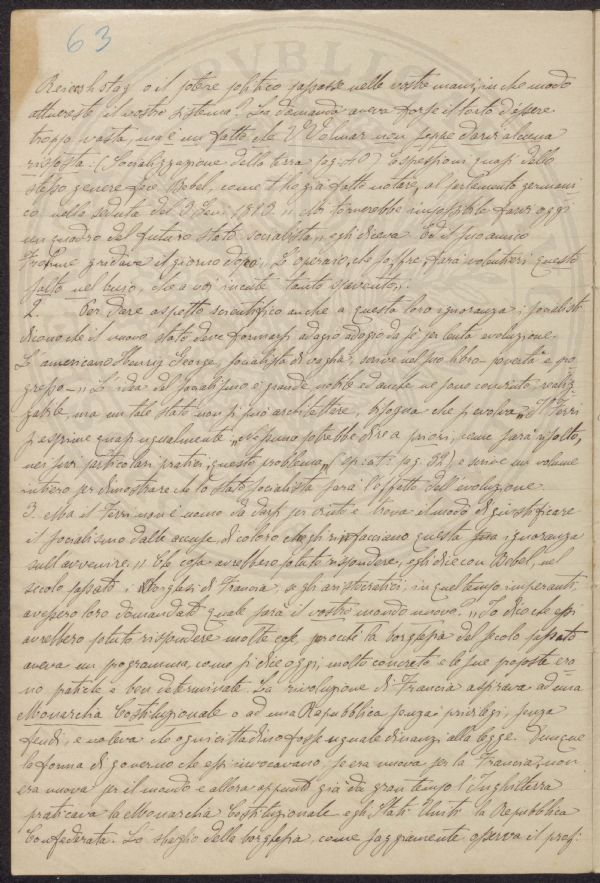 63
Reichstag o il potere politico passasse nelle vostre mani, in che modo
attuereste il vostro sistema? La domanda aveva forse il torto d'essere
troppo vasta, ma è un fatto che V Volmar non seppe darvi alcuna
risposta. (Socializzazione della terra pag. 40) Espressioni quasi dello
stesso genere Bebel, come t'ho già fatto notare, al parlamento germani
co nella seduta del 3 Gen. 1893 „ chi tornerebbe impossibile farvi oggi
un quadro del futuro stato socialista „ egli diceva. Ed il suo amico
Frohme gridava il giorno dopo, „ Lo operaio, che soffre, farà volentieri questo
salto nel buio, che a voi incute tanto spavento „.
2. Per dare aspetto scientifico anche a questa loro ignoranza i socialisti
dicono che il nuovo stato deve formarsi adagio adagio da sè per lenta evoluzione.
L'americano Henry George, socialista di vaglia, scrive nel suo libro – povertà e pro
gresso – „ Lo idea del socialismo è grande, nobile ed anche ne sono convinto, realiz
zabile, ma un tale stato non si può architettere, bisogna che si evolva „ Il Ferri
si esprime quasi ugualmente „ nessuno potrebbe dire a priori come sarà risolto,
nei suoi particolari pratici, questo problema „ (op: cit: pag. 32), e scrive un volume
intiero per dimostrare che lo stato socialista sarà l'effetto dell'evoluzione.
3. Ma il Ferri non è uomo da darsi per vinto e trova il modo di giustificare
il socialismo dalle accuse di coloro che gli rinfacciano questa sua ignoranza
sull'avvenire. „ Che cosa avrebbero potuto rispondere, egli dice con Bebel, nel
secolo passato i borghesi di Francia, se gli aristocratici, in quel tempo imperanti
avessero loro domandato quale sarà il vostro mondo nuovo? „ Io dico che essi
avrebbero potuto rispondere molte cose perocchè la borghesia del secolo passato
aveva un programma, come si dice oggi, molto concreto e le sue proposte era
no pratiche e ben determinate. La rivoluzione di Francia aspirava ad una
Monarchia Costituzionale o ad una Repubblica senza privilegi, senza
feudi, e voleva che ogni cittadino fosse uguale dinanzi alla legge. Dunque
la forma di governo che essi invocavano, se era nuova per la Francia, non
era nuova per il mondo e allora appunto già da gran tempo l'Inghilterra
praticava la Monarchia Costituzionale e gli Stati Uniti la Repubblica
Confederata. Lo sbaglio della borghesia, come saggiamente osserva il prof: